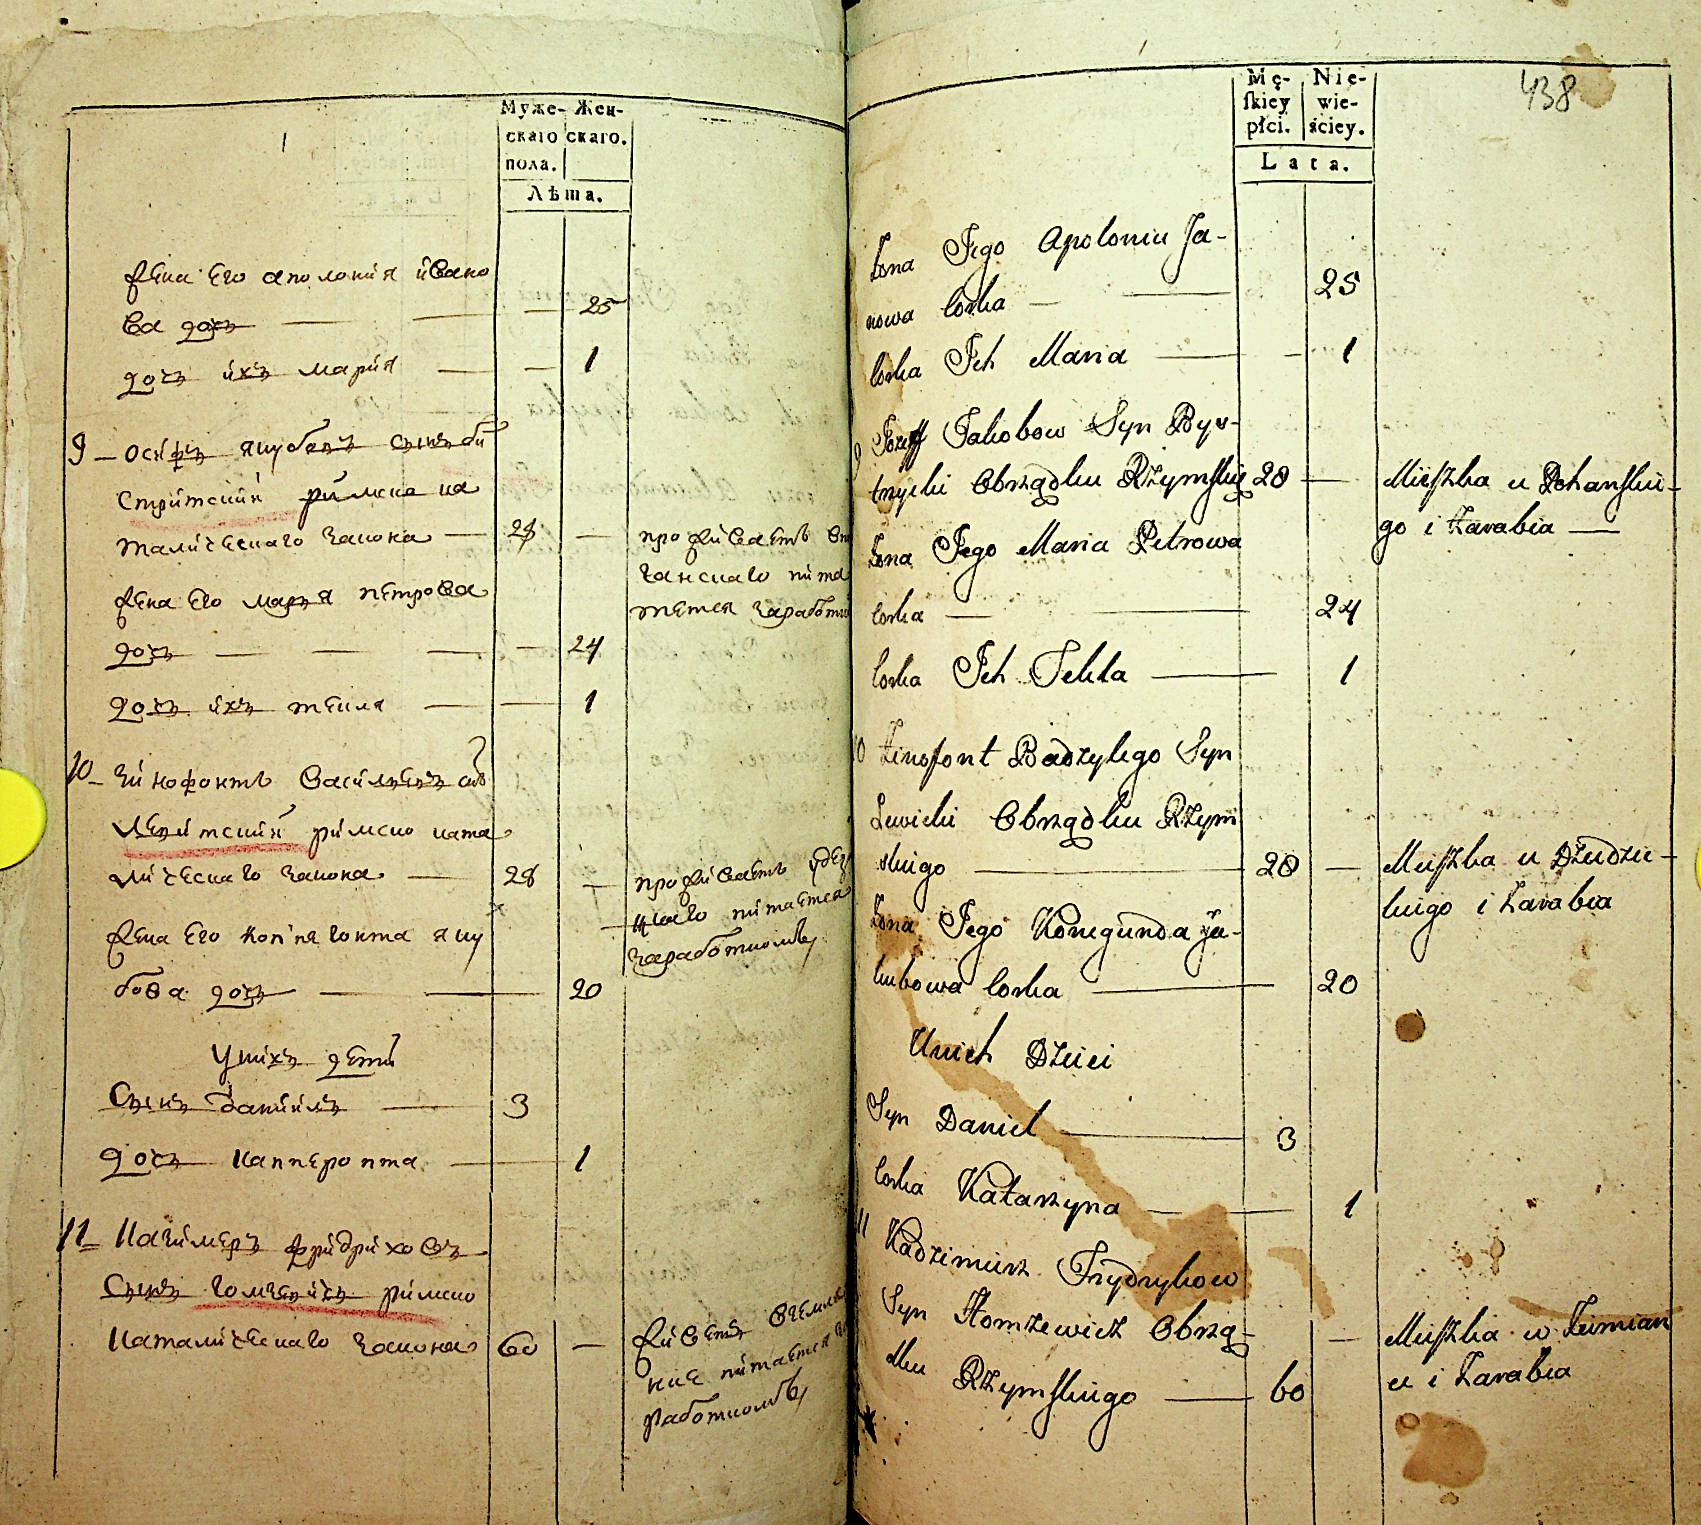 Муже- Жен-
скаго скаго.
пола.
Лѣта.
жена Его аполонія ивано
ва дочъ 25
дочъ ихъ марія 1
9 осифъ якубовъ сынъ би
стритскій римско ка
талическаго закона 28 — проживаетъ
жена Его марья петрова
питаетса заработк
дочъ 24
дочъ ихъ текла 1
10 зинофонтъ васильевъ сы
левитскій римско ката
лическаго закона 28 — проживаетъ
питаетса
заработкомъ
жена Его яку
бова дочъ 20
у нихъ дети
Сынъ данийлъ 3
дочъ 1
11 Казимеръ фридриховъ
Сынъ гомзевичъ римско
Каталическаго закона 60 — живетъ
питается
работкомъ
438
Mę- Nie-
skiey wie-
płci. ściey.
Lata.
Żona Jego Apolonia Ja-
nowa Corka — 25
Corka Jch Maria — 1
9 Jozeff Jakobow Syn Bys-
trzycki Obrządku Rzymskieg 28 — Mieszka u
go i Zarabia —
Żona Jego Maria Petrowa
Corka — 24
Corka Jch Tekla — 1
10 Zinofont Badzylego Syn
Lewicki Obrządku Rzym
skiego — 28 — Mieszka u Dziedzic-
kiego i Zarabia
Żona Jego Konegunda Ja-
kubowa Corka — 20
U nich Dzieci
Syn Daniel — 3
Corka Katarzyna — 1
11 Kadzimierz Frydrykow
Syn Homzewicz Obrzą-
dku Rzymskiego — 60 — Mieszka w Ziemian
ce i Zarabia